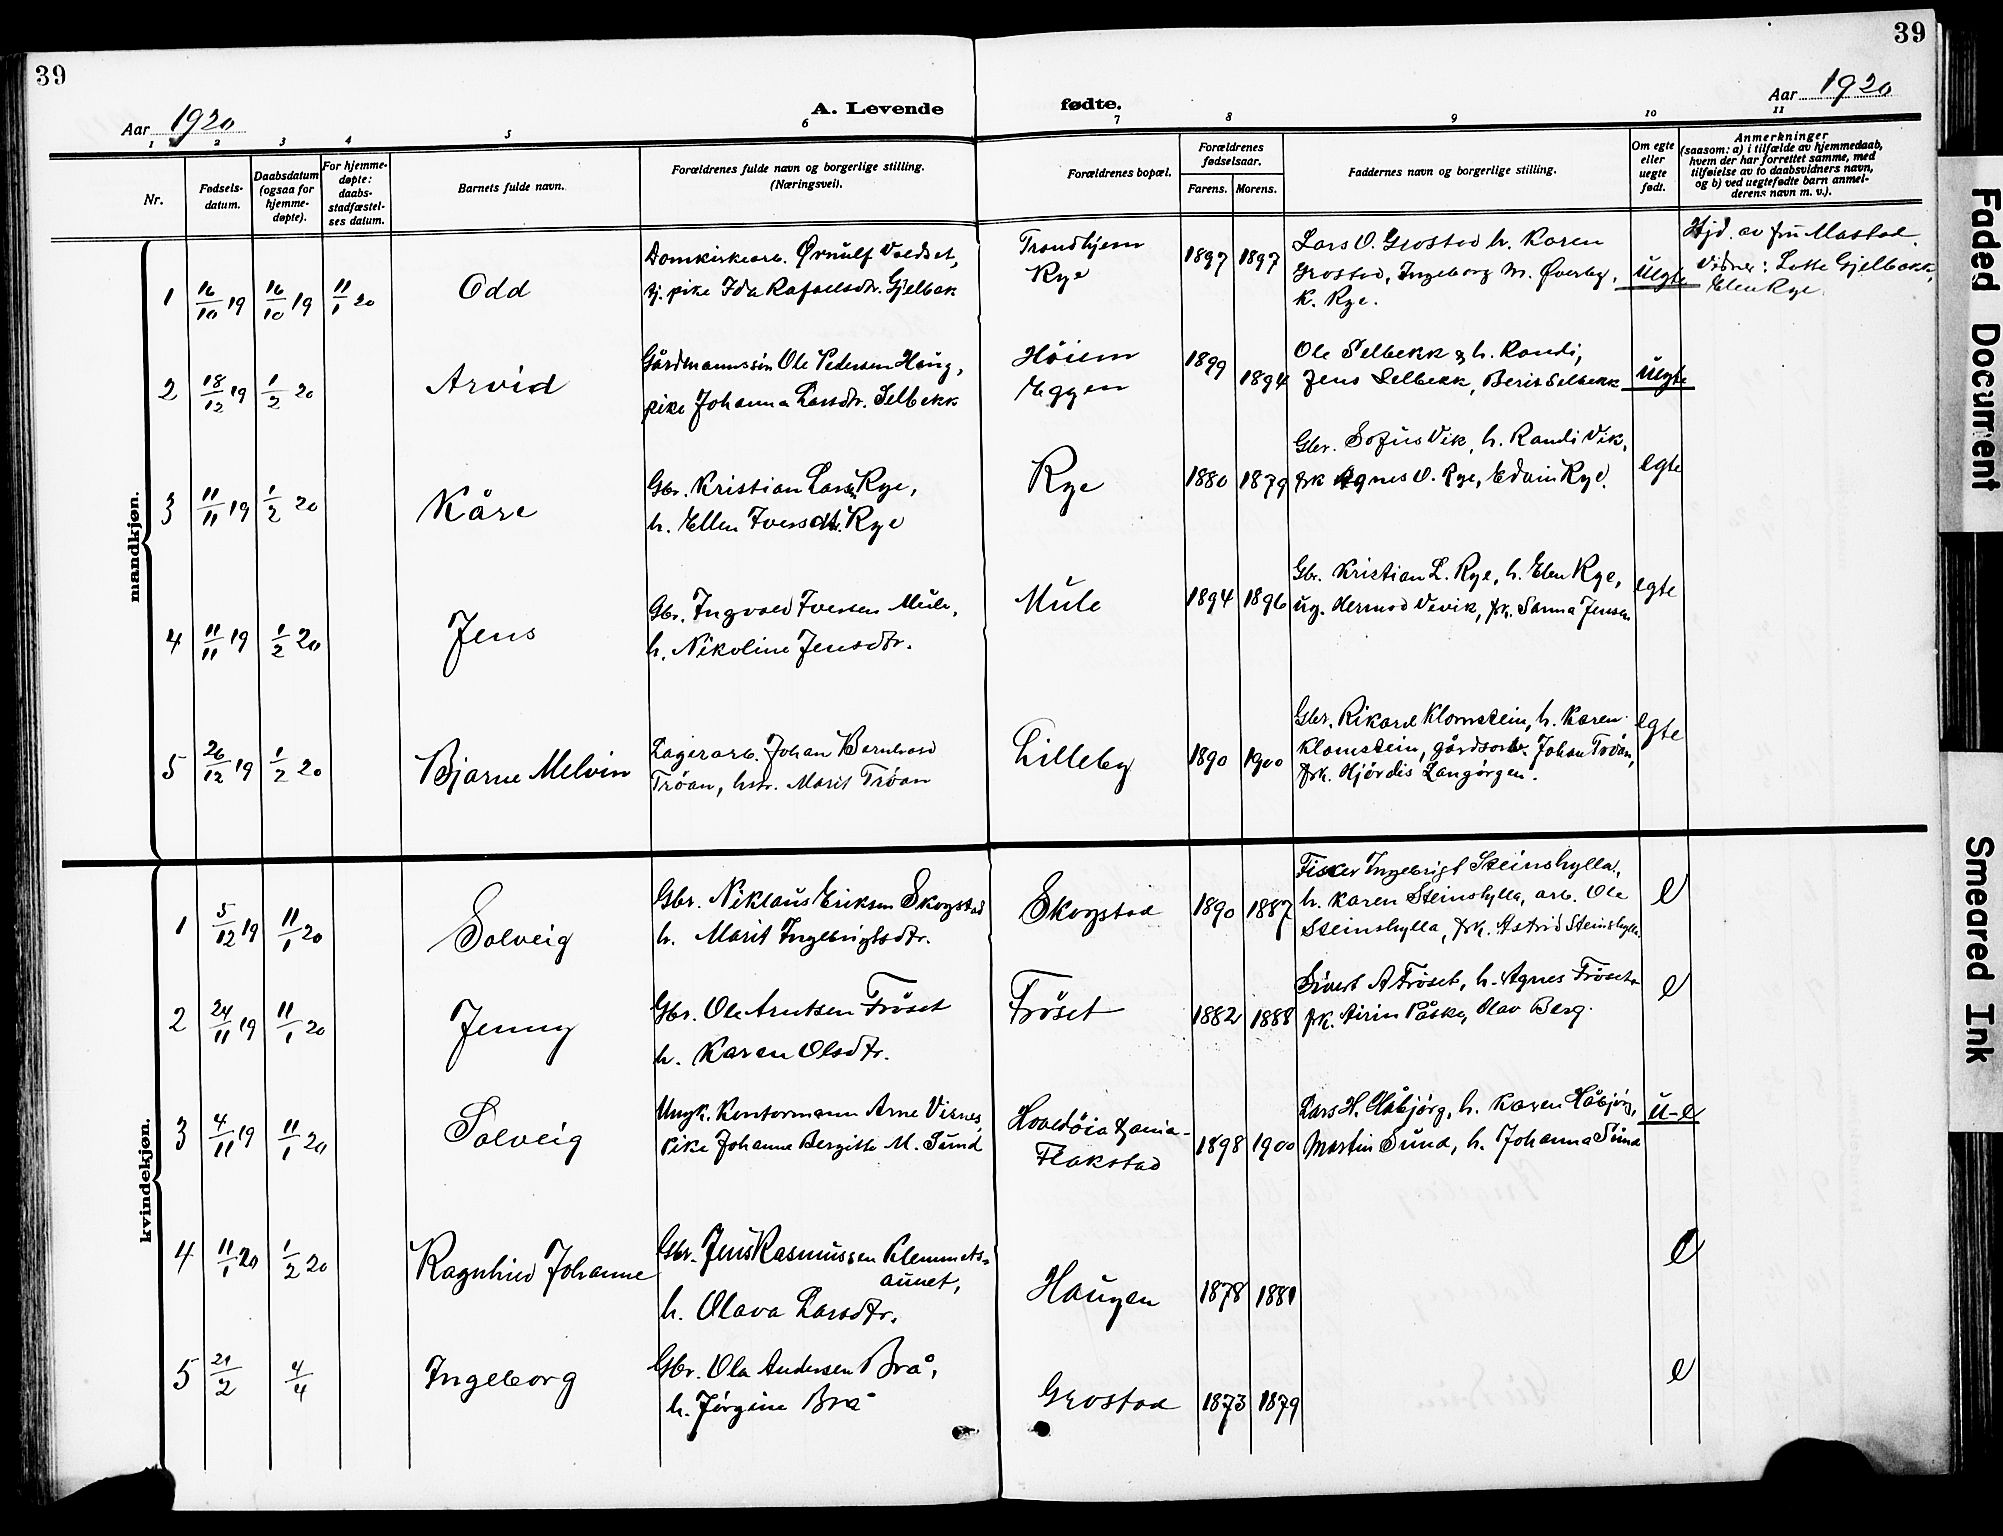 39
39
Aar 1920
A. Levende
fødte.
Aar 1920
1 2 3 4 5 6 7 8 9 10 11
Nr.
Fødsels-
datum.
Daabsdatum
(ogsaa for
hjemme-
døpte).
For hjemme-
døpte:
daabs-
stadfæstel-
ses datum.
Barnets fulde navn.
Forældrenes fulde navn og borgerlige stilling.
(Næringsvei).
Forældrenes bopæl.
Forældrenes
fødselsaar.
Farens. Morens.
Faddernes navn og borgerlige stilling.
Om egte
eller
uegte
født.
Anmerkninger
(saasom: a) i tilfælde av hjemmedaab,
hvem der har forrettet samme, med
tilføielse av to daabsvidners navn,
og b) ved uegtefødte barn anmel-
derens navn m. v.).
mandkjøn.
1 16/10 19 16/10 19 11/1 20
Odd
Domkirkearb. Ørnulf Voldset,
tj. pike Ida Rafaelsdtr. Gjelbak
Trondhjem
Rye
1897 1897
Lars O. Grostad h. Karen
Grostad, Ingeborg M. Øverby,
K. Rye.
uegte
Hjd. av fru Mastad.
Vidner: Lotte Gjelbakk,
Elen Rye.
2 18/12 19 1/2 20
Arvid
Gårdmannssøn Ole Pedersen Haug,
pike Johanna Larsdtr. Selbekk
Høiem
Eggen
1899 1894
Ole Selbekk & h. Randi,
Jens Selbekk, Berit Selbekk
uegte
3 11/11 19 1/2 20
Kåre
Gbr. Kristian Lars. Rye,
h. Ellen Iversdtr. Rye
Rye
1880 1879
Gbr. Sofus Vik, h. Randi Vik,
frk Agnes O. Rye, Edvin Rye.
egte
4 11/11 19 1/2 20
Jens
Gbr. Ingvald Iversen Mule,
h. Nikoline Jensdtr.
Mule
1894 1896
Gbr. Kristian L. Rye, h. Elen Rye,
ug. Hermod Vevik, frk. Sanna Jensen
egte
5 26/12 19 1/2 20
Bjarne Melvin
Lagerarb. Johan Bernhard
Trøan, hstr. Marit Trøan
Lilleby
1890 1900
Gbr. Rikard Klomstein, h. Karen
Klomstein, gårdsarb. Johan Trøan,
frk. Hjørdis Langørgen.
egte
kvindekjøn.
1 5/12 19 11/1 20
Solveig
Gbr. Niklaus Eriksen Skogstad
h. Marit Ingebrigtsdtr.
Skogstad
1890 1887
Fisker Ingebrigt Steinshylla,
h. Karen Steinshylla, arb. Ole
Steinshylla, frk. Astrid Steinshylla
e
2 24/11 19 11/1 20
Jenny
Gbr. Ole Arntsen Frøset
h. Karen Olsdtr.
Frøset
1882 1888
Sivert A Frøset, h. Agnes Frøset
frk. Airin Påske, Olav Berg.
e
3 4/11 19 11/1 20
Solveig
Ungk. Kontormann Arne Visnes,
Pike Johanna Bergitte M. Sund
Flakstad
1898 1900
Lars H. Håbjørg, h. Karen Håbjørg,
Martin Sund, h. Johanna Sund
u-e
4 11/1 20 1/2 20
Ragnhild Johanne
Gbr. Jens Rasmussen Klemmets-
aunet,
h. Olava Larsdtr.
Haugen
1878 1881
e
5 21/2 4/4
Ingeborg
Gbr. Ola Andersen Brå,
h. Jørgine Brå
Grostad
1873 1879
e
Faded Document
Smeared Ink